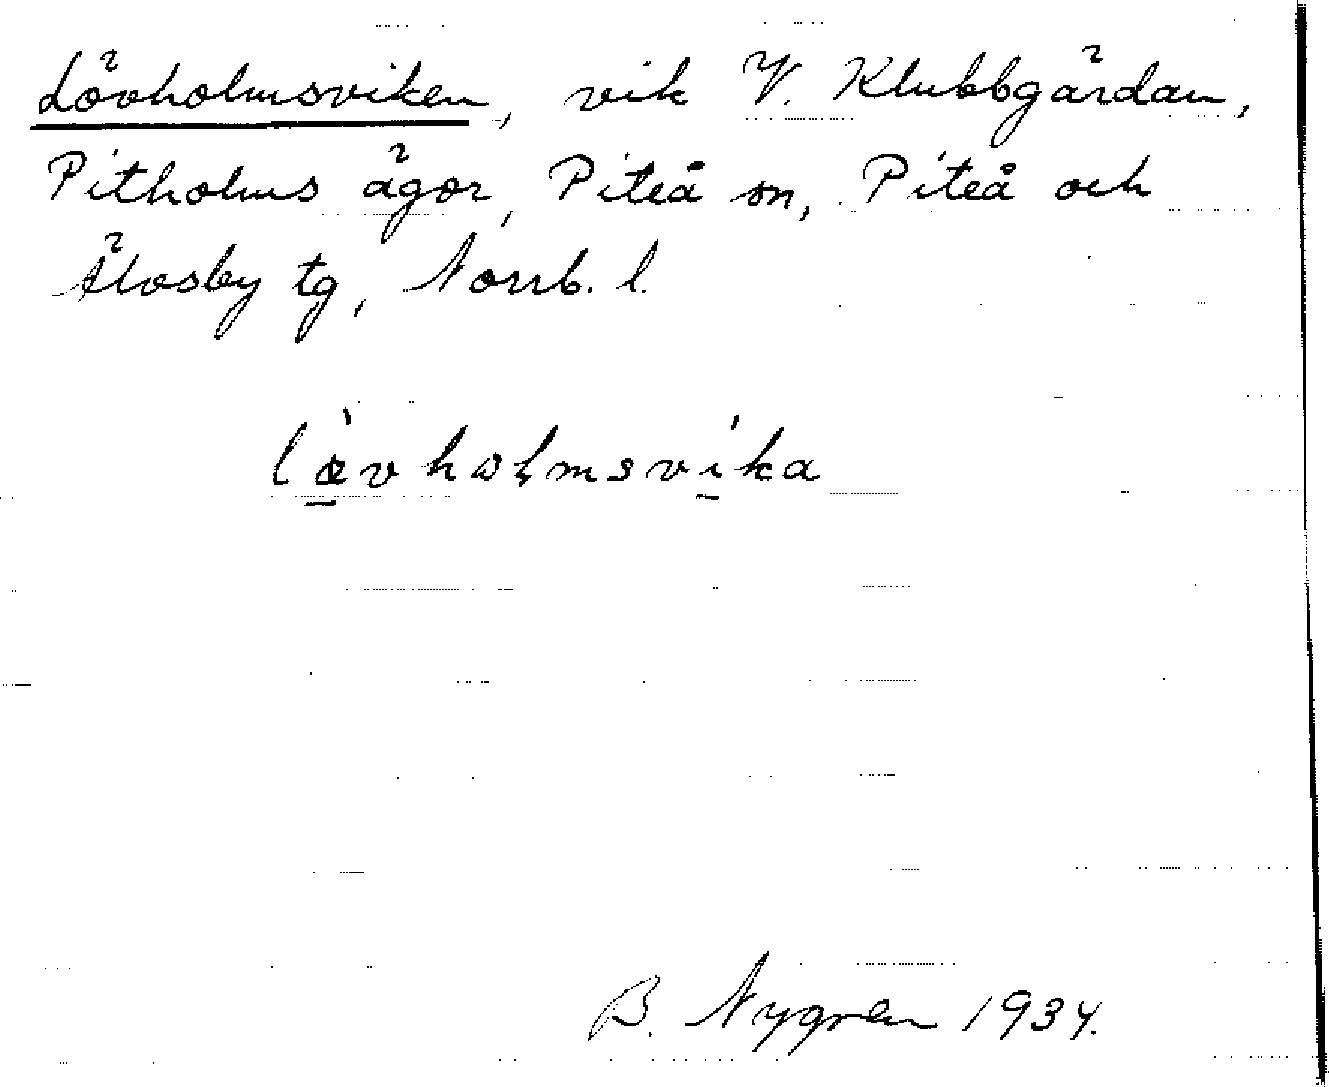 Lövholmsviken, vik V. Klubbgärdan,
Pitholms ägor, Piteå sn, Piteå och
Älvsby tg, Norrb. l.
lövholmsvika
B. Nygren 1934.